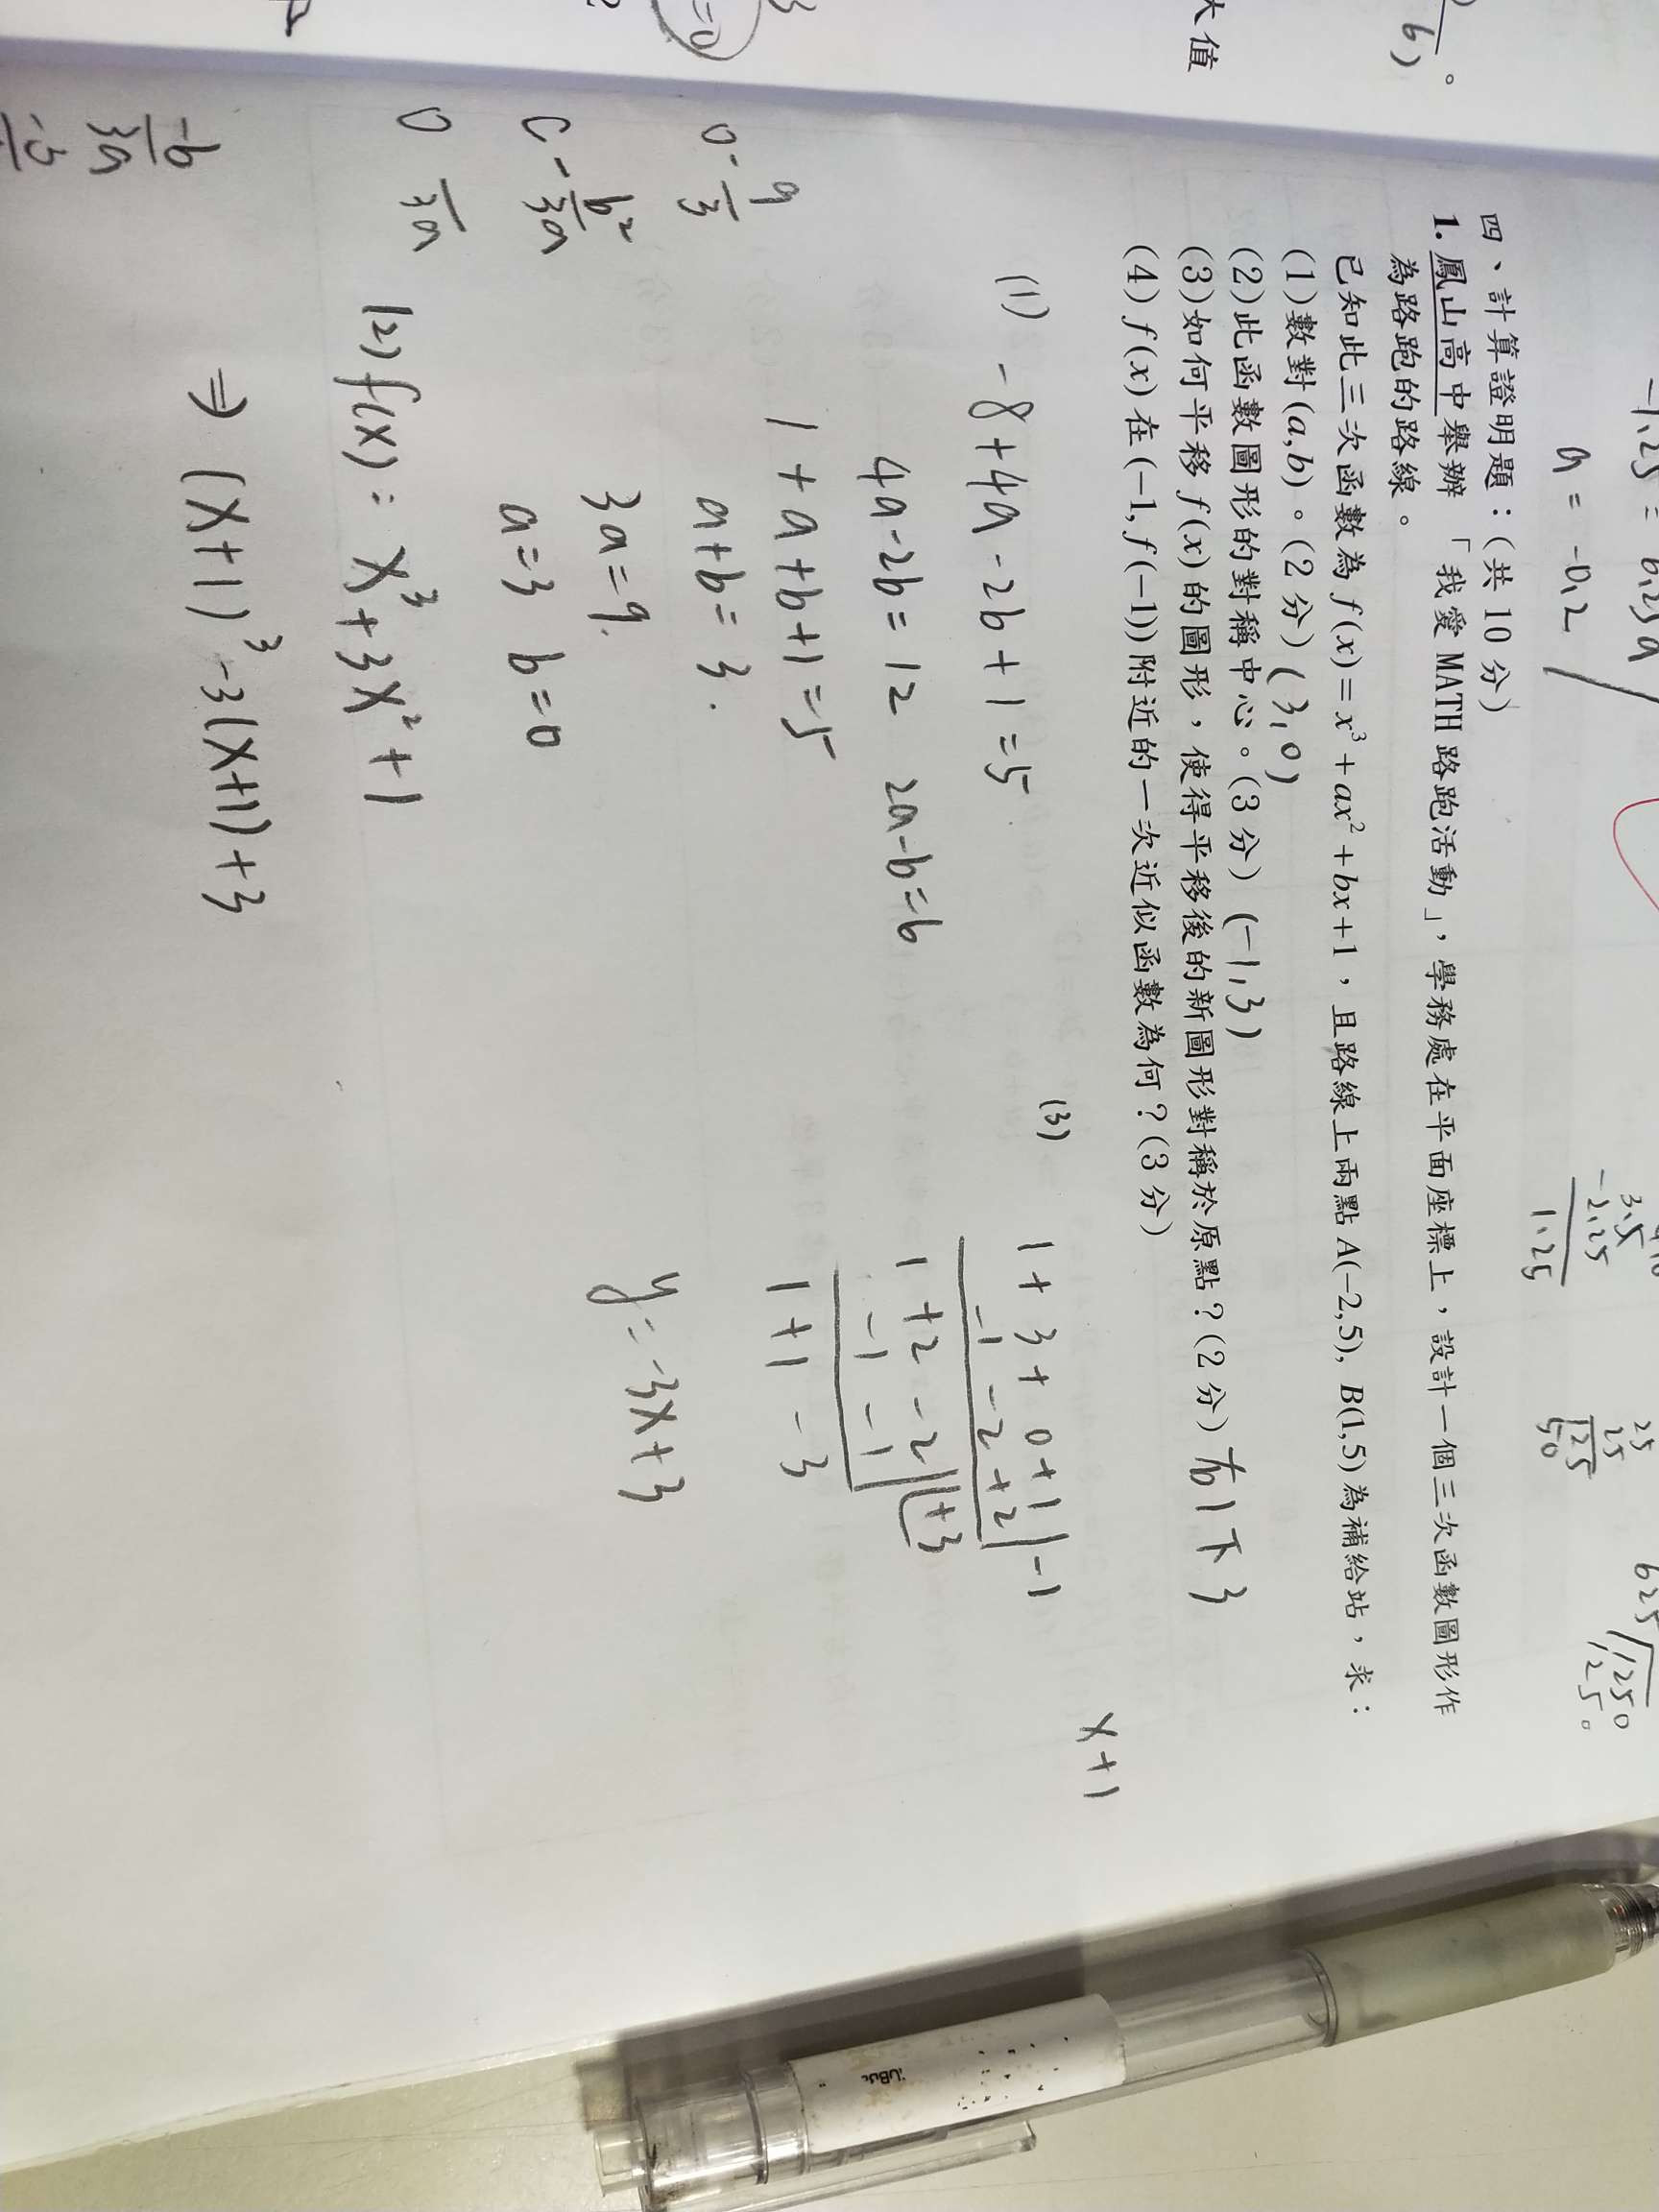 -1.25 = 6.25a
a = -0.2
3.5
-2.25
1.25
25
25
125
50
625
1250
1250
6)。
大值
=0
四、計算證明題：(共 10 分)
1. 鳳山高中舉辦 「我愛 MATH 路跑活動」，學務處在平面座標上，設計一個三次函數圖形作
為路跑的路線。
已知此三次函數為 f(x) = x³ + ax² + bx + 1，且路線上兩點 A(-2,5), B(1,5)為補給站，求：
(1)數對(a,b)。(2 分) (3,0)
(2)此函數圖形的對稱中心。(3 分) (-1,3)
(3)如何平移 f(x) 的圖形，使得平移後的新圖形對稱於原點？(2 分) 右1下3
(4) f(x) 在(-1, f(-1))附近的一次近似函數為何？(3 分)
x+1
(1) -8+4a-2b+1=5
4a-2b=12 2a-b=6
1+a+b+1=5
a+b=3.
3a=9.
a=3 b=0
(2) f(x): x³+3x²+1
⇒ (x+1)³-3(x+1)+3
(3)
1+3+0+1 | -1
-1-2+2
1+2-2 | +3
-1-1
1+1-3
y=-3x+3
0 - a/3
C - b²/3a
0 /3a
-b/3a